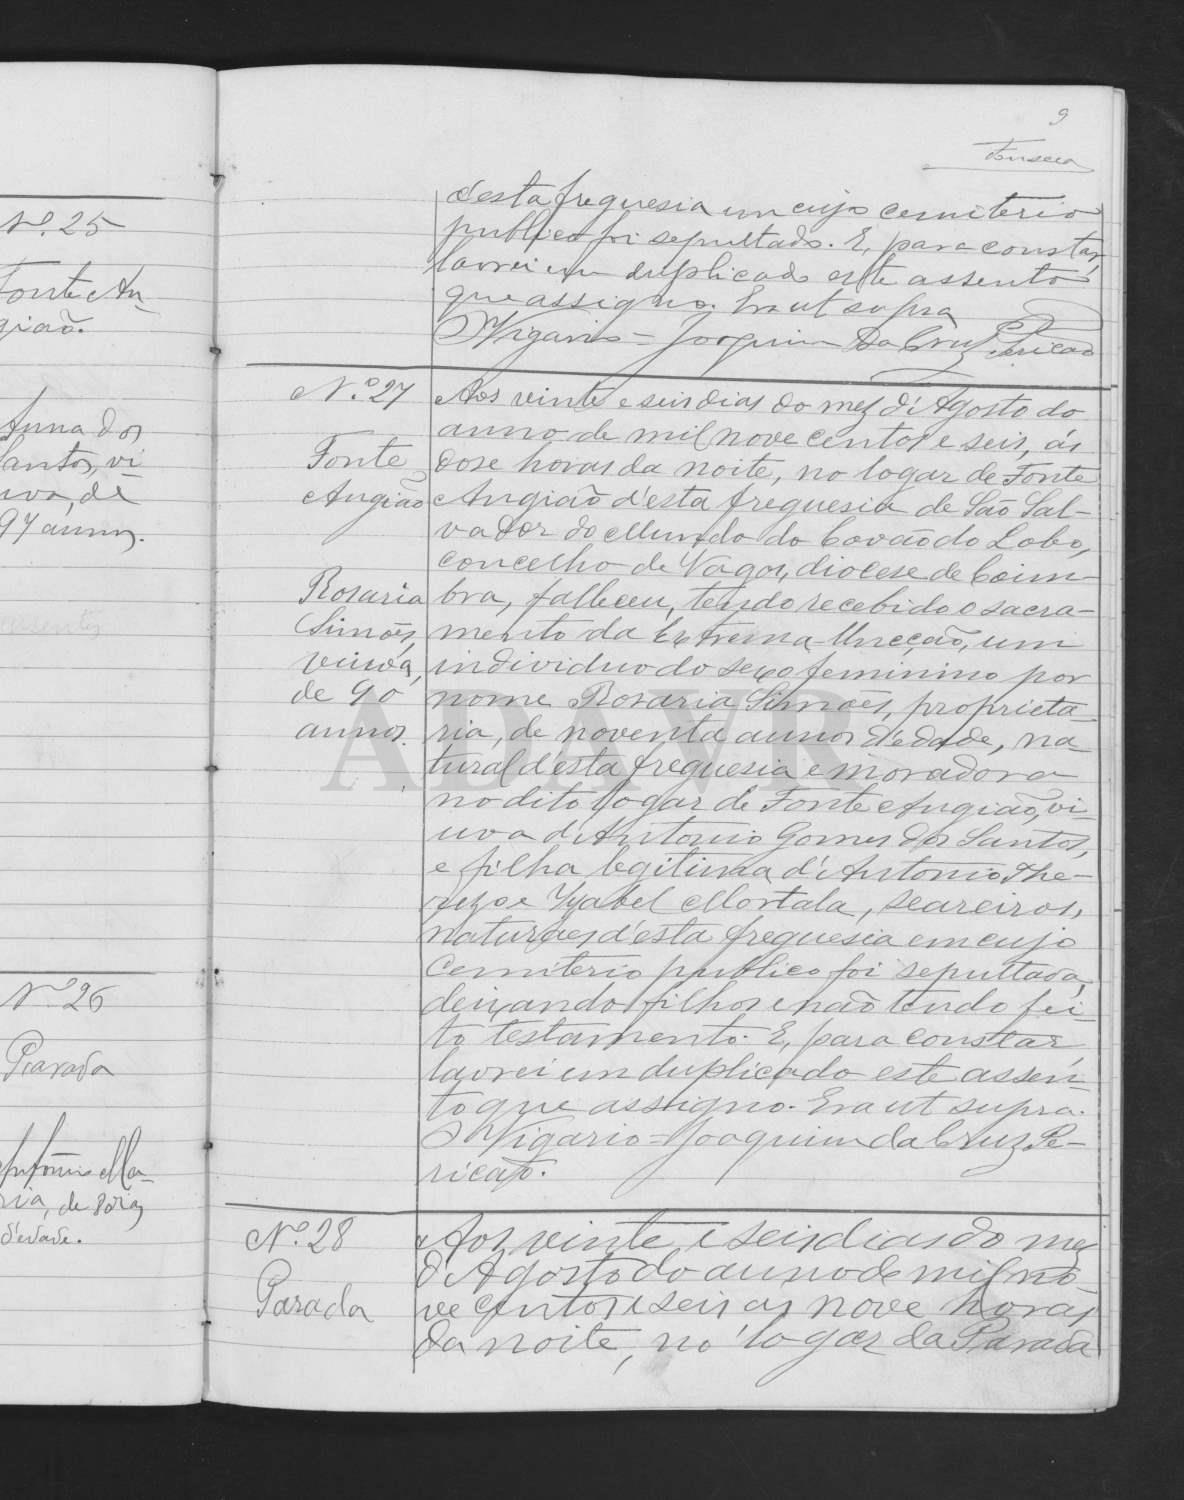 Nº. 25
Fonte An-
gião.
Anna dos
Santos, vi
uva, de
97 annos.
Nº 26
Parada
Antonio Ma-
ria, de dias
d'edade.
9
Fonseca
d'esta freguesia em cujo cemiterio
publico foi sepultado. E, para constar,
lavrei em duplicado este assento
que assigno. Era ut supra
O Vigario = Joaquim da Cruz Pericão
Nº. 27
Fonte
Angião
Rosaria
Simões,
viuva,
de 90
annos.
Aos vinte e seis dias do mez d'Agosto do
anno de mil nove centos e seis, ás
dose horas da noite, no logar de Fonte
Angião d'esta freguesia de São Sal-
vador do Mundo do Covão do Lobo,
concelho de Vagos, diocese de Coim-
bra, falleceu, tendo recebido o sacra-
mento da Extrema Uncção, um
individuo do sexo feminino por
nome Rosaria Simões, proprieta-
ria, de noventa annos d'edade, na-
tural d'esta freguesia e moradora
no dito logar de Fonte Angião, vi-
uva d'Antonio Gomes dos Santos,
e filha legitima d'Antonio The-
rezo e Yzabel Mortala, seareiros,
naturaes d'esta freguesia em cujo
cemiterio publico foi sepultada,
deixando filhos e não tendo fei-
to testamento. E, para constar
lavrei em duplicado este assen-
to que assigno. Era ut supra.
O Vigario = Joaquim da Cruz Pe-
ricão.
Nº. 28
Parada
Aos vinte e seis dias do mez
d'Agosto do anno de mil no-
ve centos e seis as nove horas
da noite, no logar da Parada
ADAVR